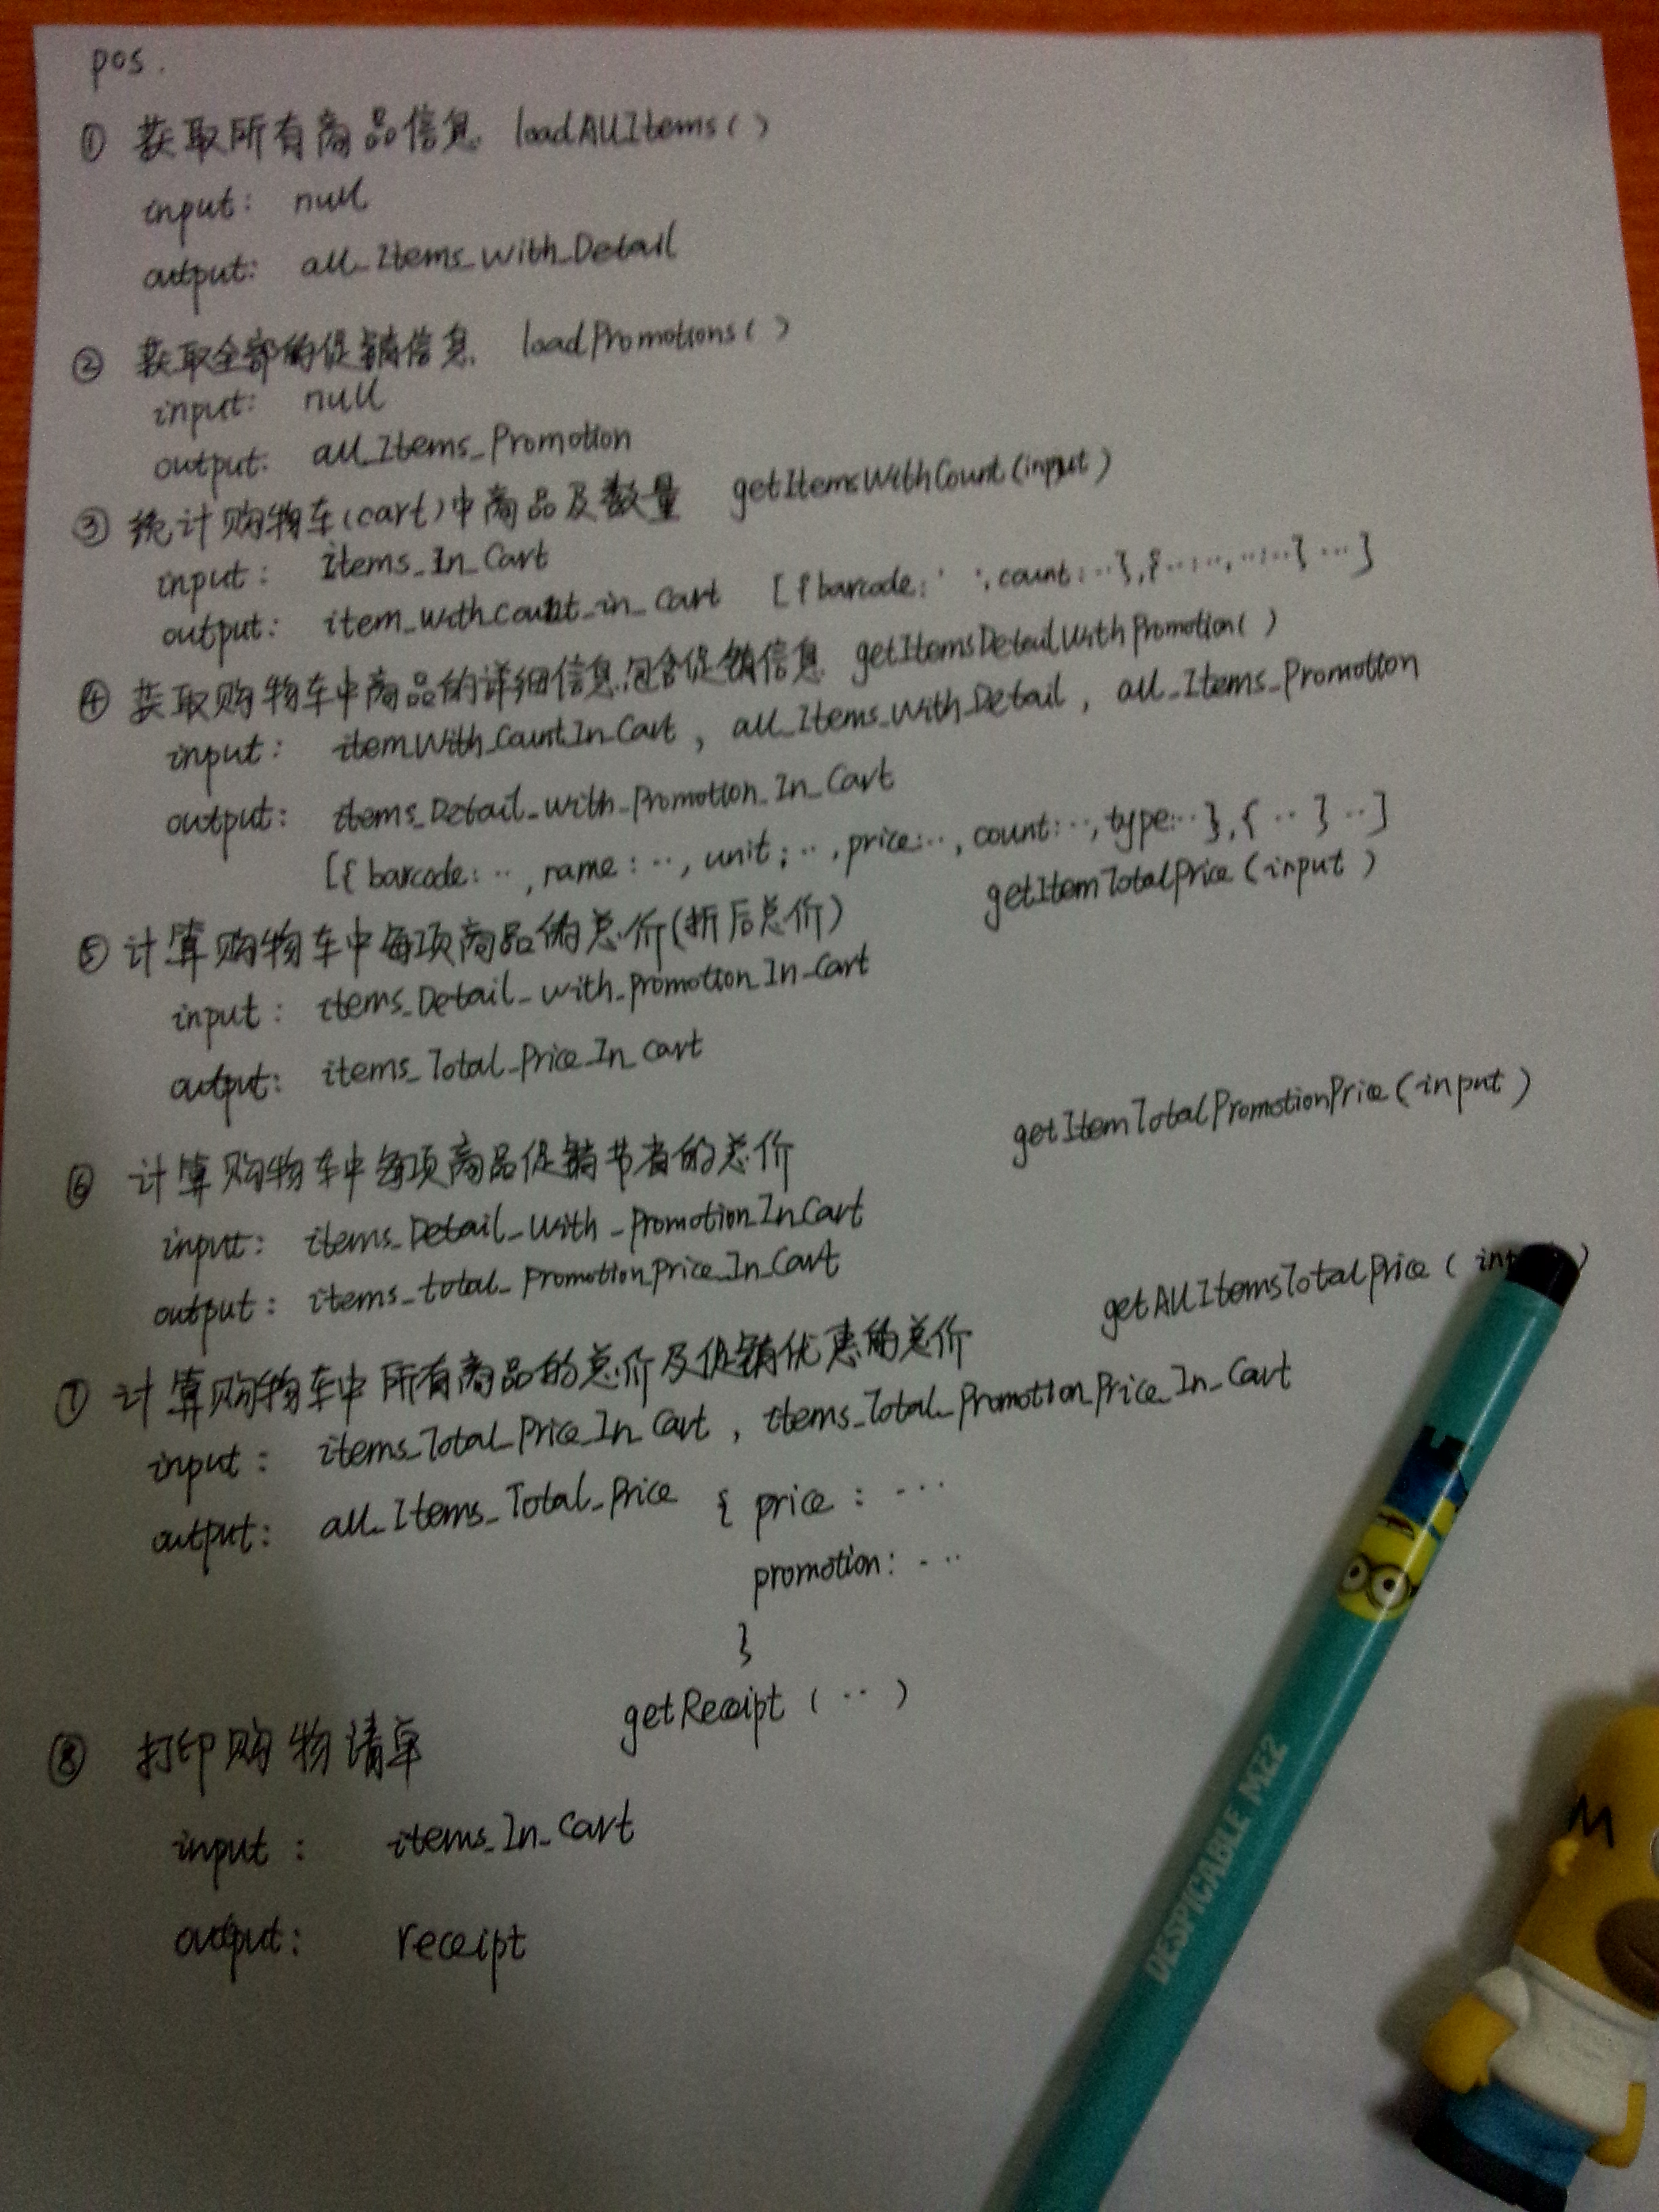 pos.
① 获取所有商品信息 loadAllItems()
input: null
output: all_Items_with_Detail
② 获取全部的促销信息 loadPromotions()
input: null
output: all_Items_Promotion
③ 统计购物车(cart)中商品及数量 getItemsWithCount(input)
input: items_In_Cart
output: item_with_count_in_Cart [{barcode: ' ', count: ...}, {...:..., ...:...} ...]
④ 获取购物车中商品的详细信息,包含促销信息 getItemsDetailWithPromotion()
input: itemWith_CountIn_Cart, all_Items_With_Detail, all_Items_Promotion
output: items_Detail_with_Promotion_In_Cart
[{barcode: .., name: .., unit: .., price: .., count: .., type: ..}, { .. } ..]
⑤ 计算购物车中每项商品的总价(折后总价) getItemTotalPrice(input)
input: items_Detail_with_promotion_In_Cart
output: items_Total_Price_In_Cart
⑥ 计算购物车中每项商品促销节省的总价 getItemTotalPromotionPrice(input)
input: items_Detail_With_PromotionInCart
output: items_total_PromotionPrice_In_Cart
⑦ 计算购物车中所有商品的总价及促销优惠的总价 getAllItemsTotalPrice( in )
input: items_Total_Price_In_Cart, items_Total_Promotion_Price_In_Cart
output: all_Items_Total_Price { price: ...
promotion: ...
}
⑧ 打印购物请单 getReceipt(..)
input: items_In_Cart
output: receipt
DESPICABLE ME2